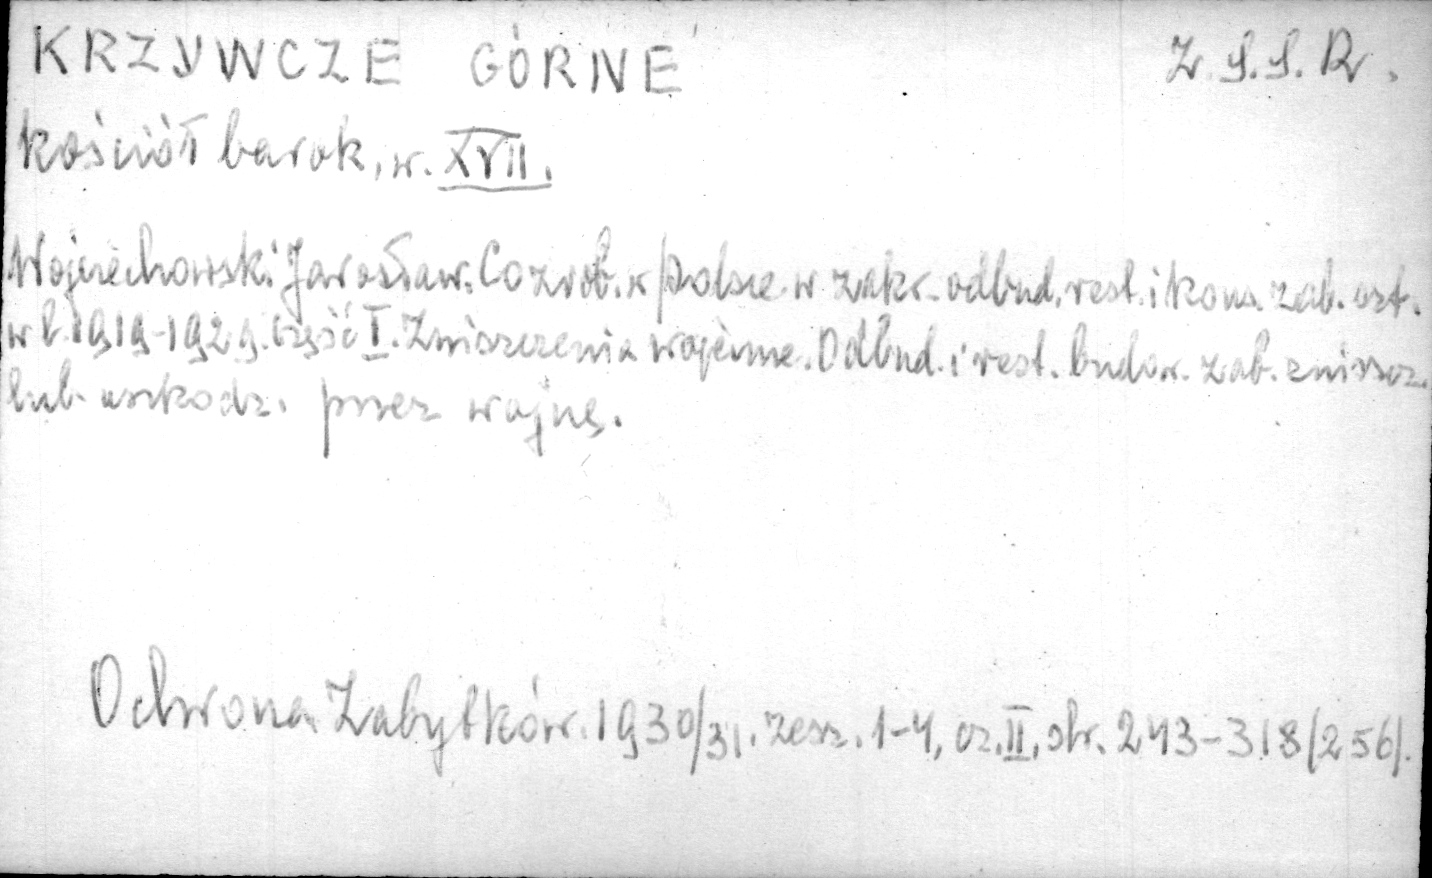 KRZYWCZE GÓRNE Z.S.S.R.
kościół barok, w. XVII.
Wojciechowski Jarosław. Co zrob. w Polsce w zakr. odbud. rest. i kons. zab. szt.
w l. 1919-1929. Część I. Zniszczenia wojenne. Odbud. i rest. budow. zab. zniszcz.
lub uszkodz. przez wojnę.
Ochrona Zabytków. 1930/31. zesz. 1-4, cz. II, str. 243-318/256/.